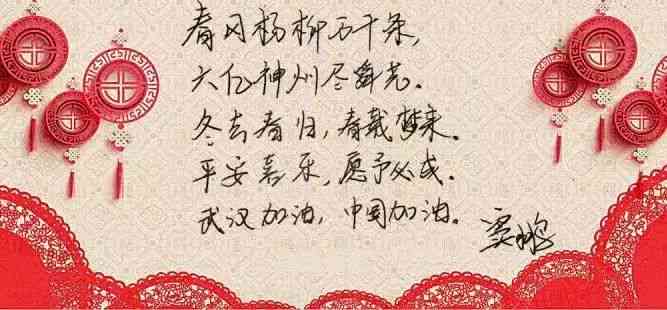 春风杨柳万千条,
六亿神州尽舜尧.
冬去春归,春载梦来.
平安喜乐,愿予必成.
武汉加油,中国加油。